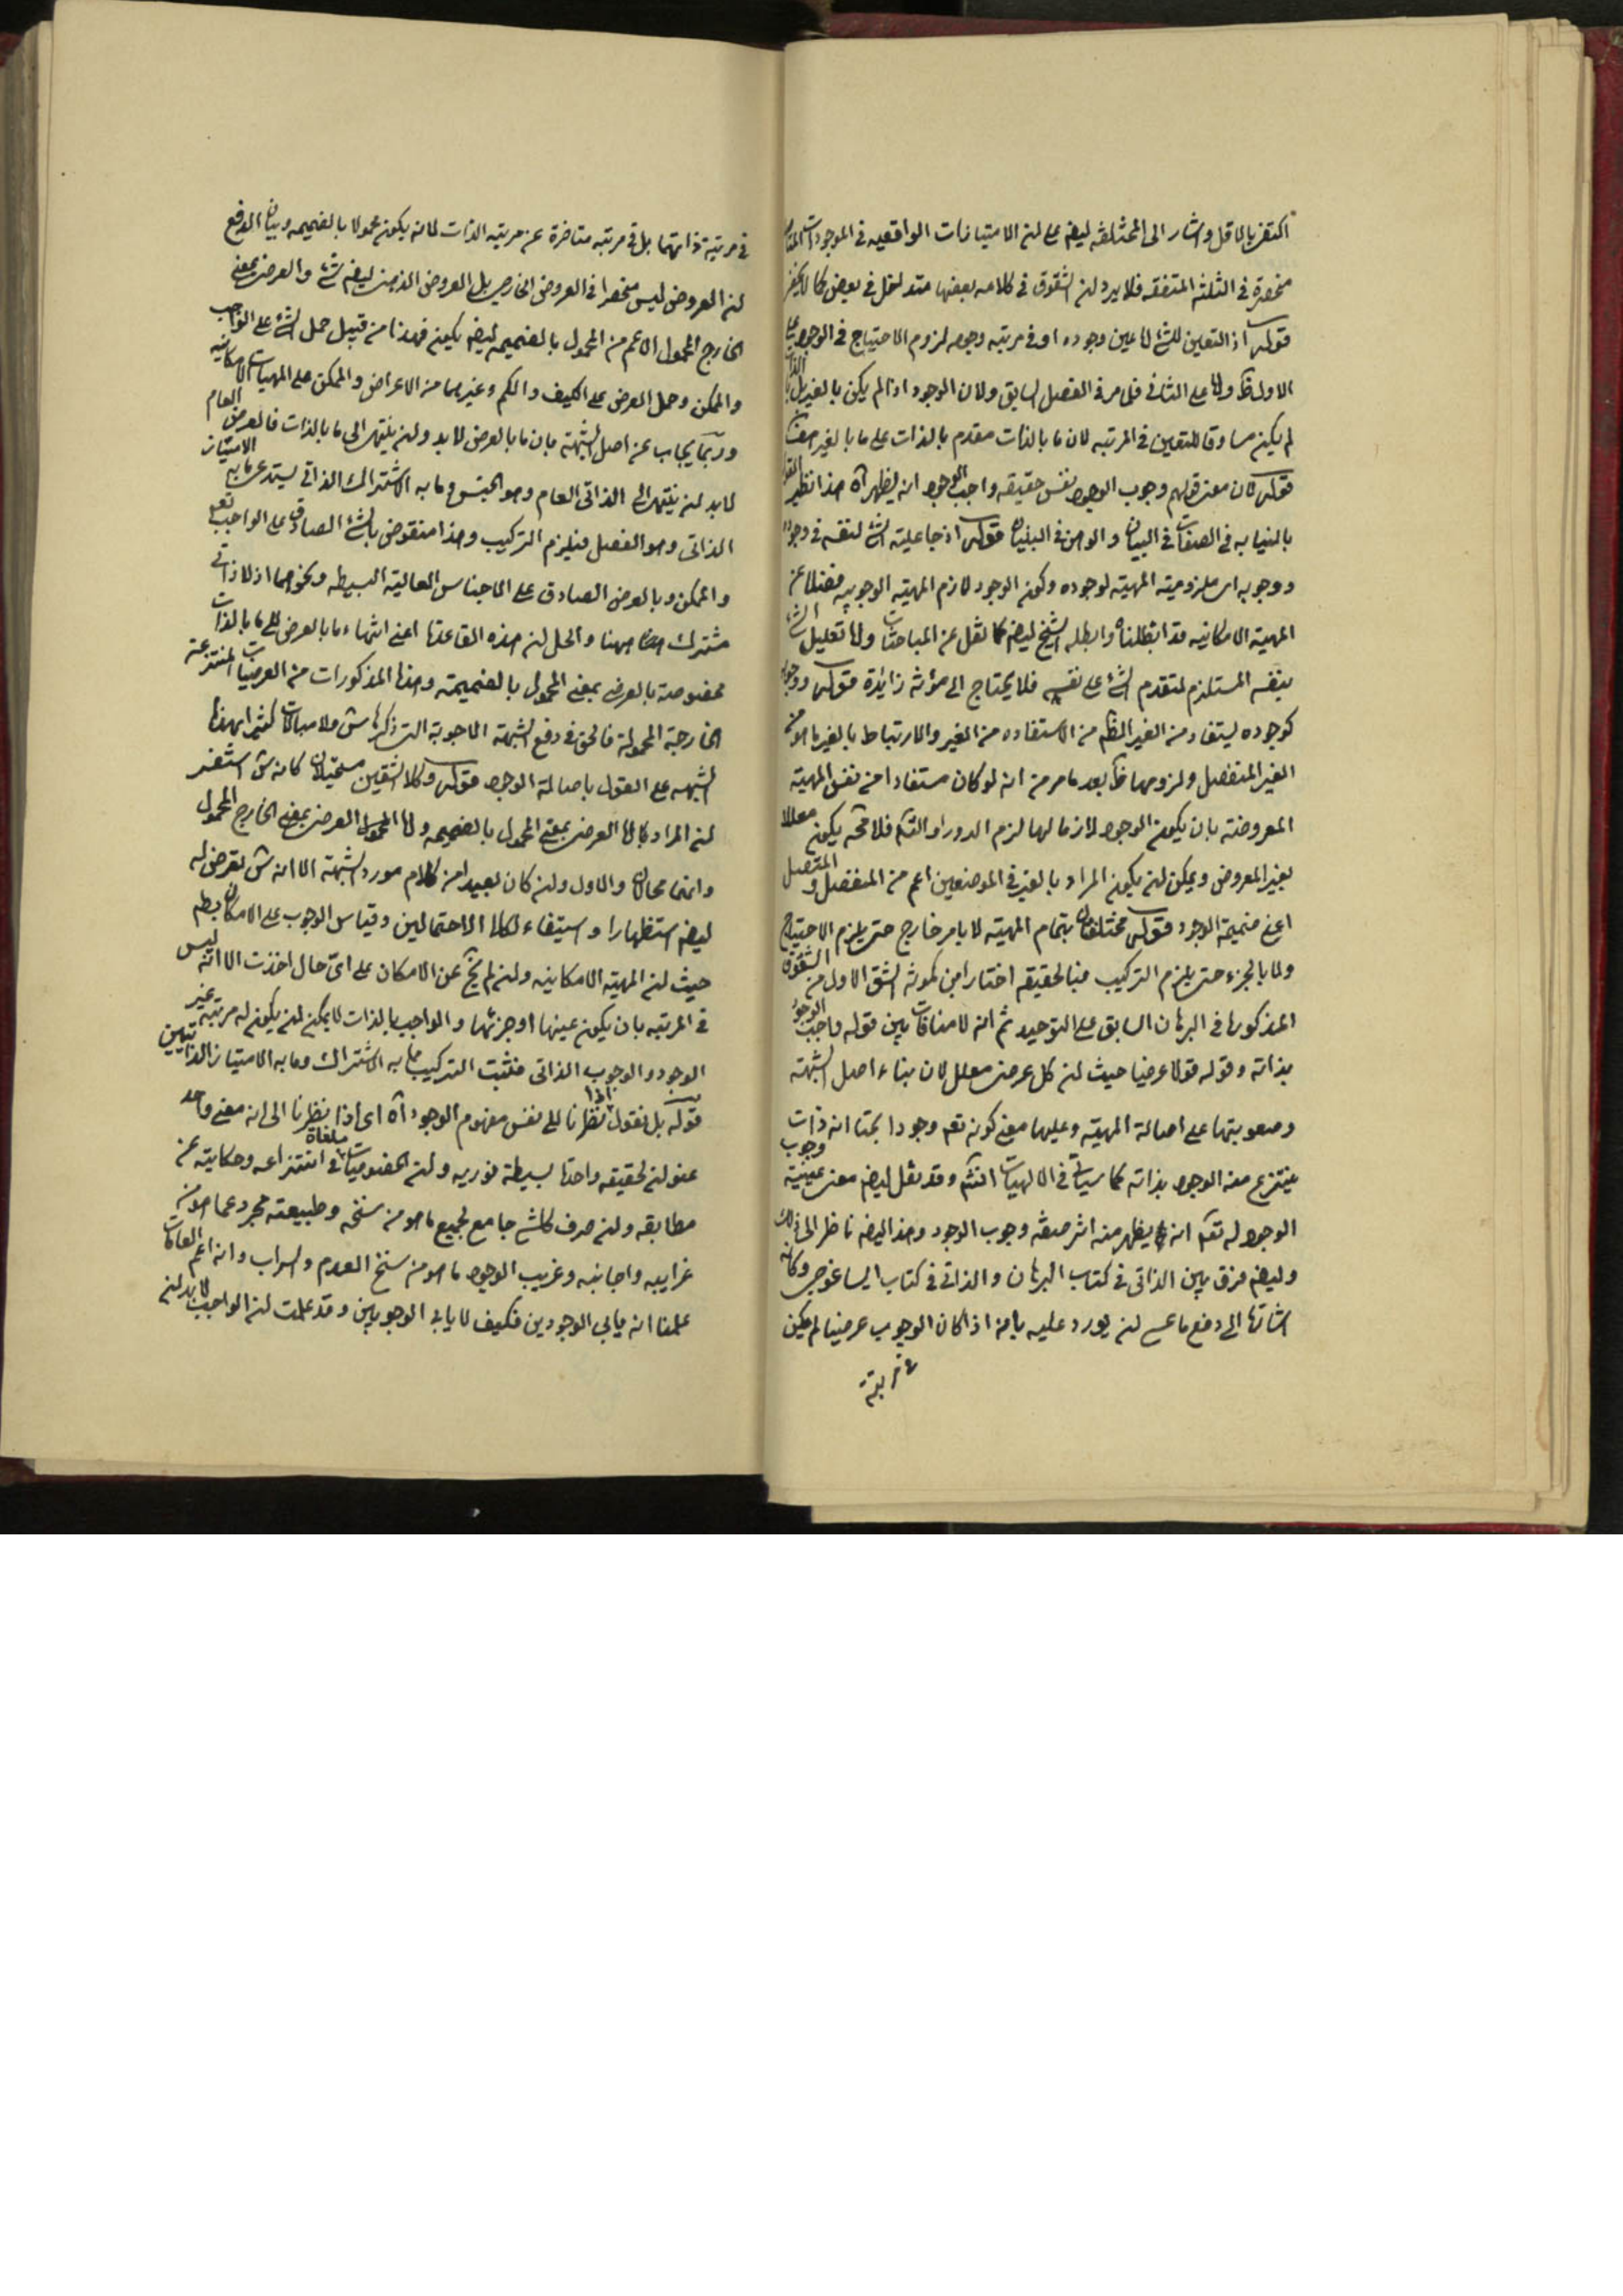 اكتفى بالاقل واشار الى المختلفه ايضا على ان الامتيازات الواقعيه فى الموجودات
منحصرة فى الثلثه المتفقه فلا يرد ان الشقوق فى كلامه بعضها متداخل فى بعض كما لا يخفى
قوله اذ التعين للشئ اما عين وجوده او فى مرتبه وجوده لزوم الاحتياج فى الوجود على
الاول ظ واما على الثانى فلما مر فى الفصل السابق ولان الموجود اذا لم يكن بالغير بل بالذات
لم يكن مساوقا للتعين فى المرتبه لان ما بالذات مقدم بالذات على ما بالغير
قوله كان معنى قولهم وجوب الوجود نفس حقيقه واجب الوجود انه يظهر آه هذا نظير القول
بالنيابه فى الصفات فى البيان والوهن فى البنيان قوله اذ جاعلية الشئ لنفسه فى وجوده
ووجوبه اى ملزومية المهية لوجوده وكون الوجود لازم المهية الوجوبيه فضلا عن
المهية الامكانيه قد ابطلناه وابطله الشيخ ايضا كما نقل عن المباحثات واما تعليل الشئ
بنفسه المستلزم لتقدم الشئ على نفسه فلا يحتاج الى مؤنة زائدة قوله ووجوده
كوجوده يستفاد من الغير الظ من الاستفاده من الغير والارتباط بالغير ما هو من
الغير المنفصل ولزومها ظ بعد ما مر من انه لو كان مستفادا من نفس المهية
المعروضة بان يكون الوجود لازما لها لزم الدور او التسم فلا محة يكون معللا
بغير المعروض ويمكن ان يكون المراد بالغير فى الموضعين اعم من المنفصل والمتصل
اعنى ضميمة الوجود قوله مختلفان بتمام المهية لا بامر خارج حتى يلزم الاحتياج
ولا بالجزء حتى يلزم التركيب فبالحقيقه اختار ابن كمونه الشق الاول من الشقوق
المذكوره فى البرهان السابق على التوحيد ثم انه لا منافات بين قوله واجب الوجود
بذاته وقوله قولا عرضيا حيث ان كل عرضى معلل لان بناء اصل الشبهة
وصعوبتها على اصالة المهية وعليها معنى كونه تعم وجودا بحتا انه ذات
ينتزع منه الوجود بذاته كما سيأتى فى الالهيات انشم وقد نقل ايضا معنى عينية وجوب
الوجود له تعم انه يظهر منه اثر صفة وجوب الوجود وهذا ايضا ناظر الى ذلك
وايضا فرق بين الذاتى فى كتاب البرهان والذاتى فى كتاب ايساغوجى وكانه
اشارة الى دفع ما عسى ان يورد عليه بانه اذا كان الوجوب عرضيا لم يكن
فى مرتبة
فى مرتبة ذاتهما بل فى مرتبه متاخرة عن مرتبه الذات لانه يكون محمولا بالضميمه وبيان الدفع
ان العروض ليس منحصرا فى العروض الخارجى بل العروض الذهنى ايضا شئ والعرضى بمعنى
الخارج المحمول الاعم من المحمول بالضميمه ايضا يكون فهذا من قبيل حمل الشئ على الواجب
والممكن وحمل العرض على الكيف والكم وغيرهما من الاعراض والممكن على المهيات الامكانيه
وربما يجاب عن اصل الشبهة بان ما بالعرض لا بد وان ينتهى الى ما بالذات فالعرضى العام
لا بد ان ينتهى الى الذاتى العام وهو الجنس وما به الاشتراك الذاتى يستدعى ما به الامتياز
الذاتى وهو الفصل فيلزم التركيب وهذا منقوض بالشئ الصادق على الواجب تعم
والممكن وبالعرض الصادق على الاجناس العالية البسيطه ونحوهما اذ لا ذاتى
مشترك ههنا والحل ان هذه القاعدة اعنى انتهاء ما بالعرض الى ما بالذات
مخصوصة بالعرضى بمعنى المحمول بالضميمة وهذا المذكورات من العرضيات المنتزعة
الخارجة المحمولة فالحق فى دفع الشبهة الاجوبة التى ذكرها ش ولا مبالات كثيرا بهذه
الشبهه على القول باصالة الوجود قوله وكلا الشقين مستحيلان كانه ش استشعر
ان المراد اما العرضى بمعنى المحمول بالضميمه واما المحمول العرضى بمعنى الخارج المحمول
وانهما محالان والاول وان كان بعيدا من كلام مورد الشبهة الا انه ش تعرض له
ايضا استظهارا واستيفاء لكلا الاحتمالين وقياس الوجوب على الامكان بط
حيث ان المهية الامكانيه وان لم تخ عن الامكان على اى حال اخذت الا انه ليس
فى المرتبه بان يكون عينها او جزئها والواجب بالذات لا يمكن ان يكون له مرتبه غير
الوجود والوجوب الذاتى فثبت التركيب مما به الاشتراك وما به الامتياز الذاتيين
قوله بل نقول اذا نظرنا الى نفس مفهوم الوجود آه اى اذا نظرنا الى انه معنى واحد
عنوان لحقيقه واحدة بسيطة نوريه وان الخصوصيات ملغاة فى انتزاعه وحكايته عن
مطابقه وان صرف كل شئ جامع لجميع ما هو من سنخه وطبيعته مجرد عما هو من
غرايبه واجانبه وغريب الوجود ما هو من سنخ العدم والسراب وانه اعم العامات
علمنا انه يابى الوجودين فكيف لا يابى الوجوبين وقد علمت ان الواجب لا بد ان